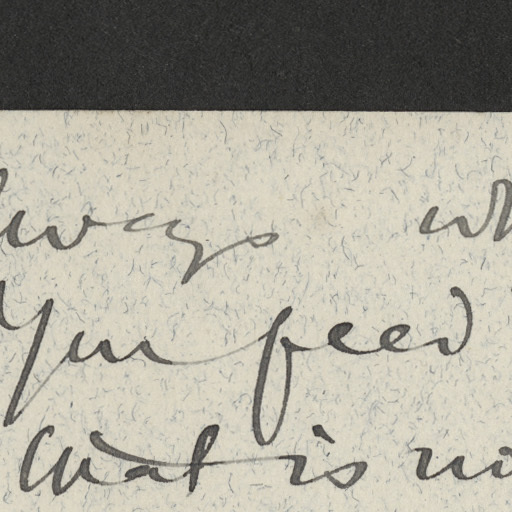 lways wh
You feed
What is no